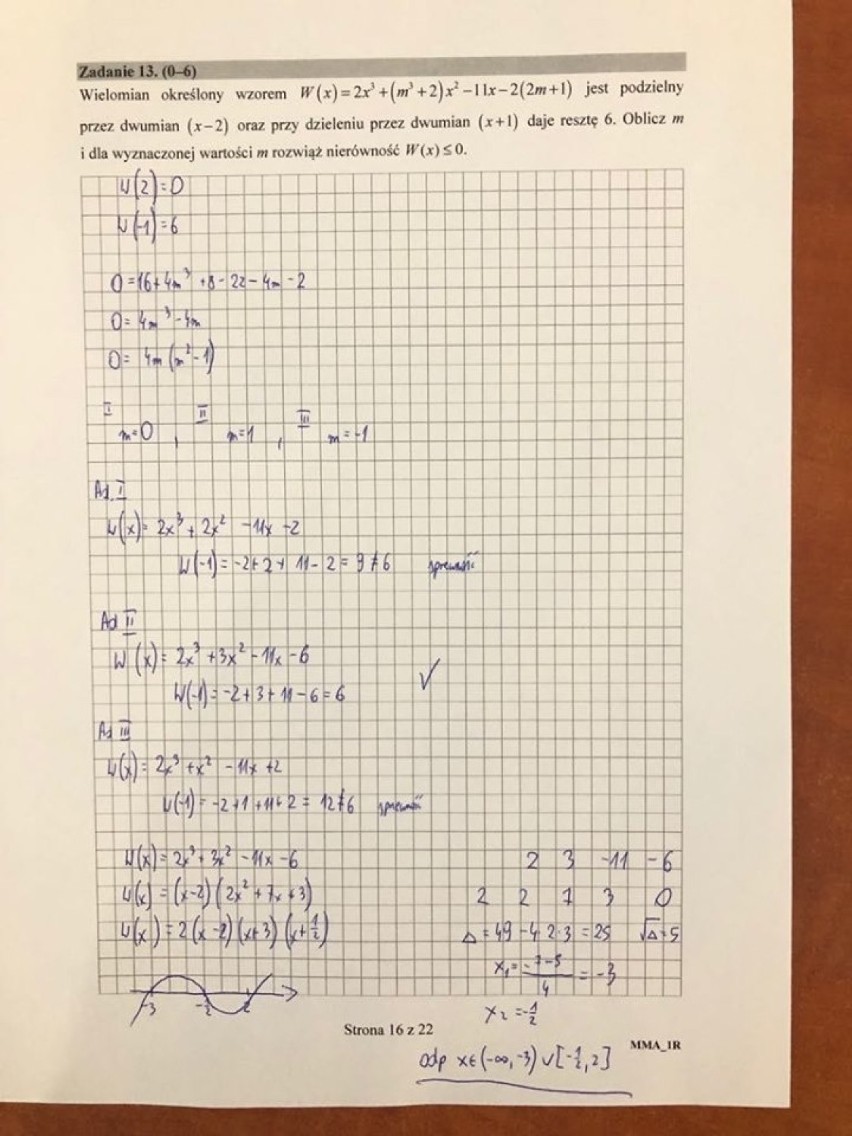 Zadanie 13. (0–6)
Wielomian określony wzorem W(x)=2x³+(m³+2)x²−11x−2(2m+1) jest podzielny
przez dwumian (x−2) oraz przy dzieleniu przez dwumian (x+1) daje resztę 6. Oblicz m
i dla wyznaczonej wartości m rozwiąż nierówność W(x)≤0.
W(2)=0
W(-1)=6
0=16+4m³+8-22-4m-2
0=4m³-4m
0=4m(m²-1)
I II III
m=0, m=1, m=-1
Ad I
W(x)=2x³+2x²-11x-2
W(-1)=-2+2+11-2=9≠6 sprzeczność
Ad II
W(x)=2x³+3x²-11x-6
W(-1)=-2+3+11-6=6 ✓
Ad III
W(x)=2x³+x²-11x+2
W(-1)=-2+1+11+2=12≠6 sprzeczność
W(x)=2x³+3x²-11x-6 2 3 -11 -6
W(x)=(x-2)(2x²+7x+3) 2 2 7 3 0
W(x)=2(x-2)(x+3)(x+1/2) Δ=49-4·2·3=25 √Δ=5
x₁=(-7-5)/4=-3
-3 -1/2 2
x₂=-1/2
Strona 16 z 22
MMA_1R
odp x∈(-∞,-3)∪[-1/2,2]